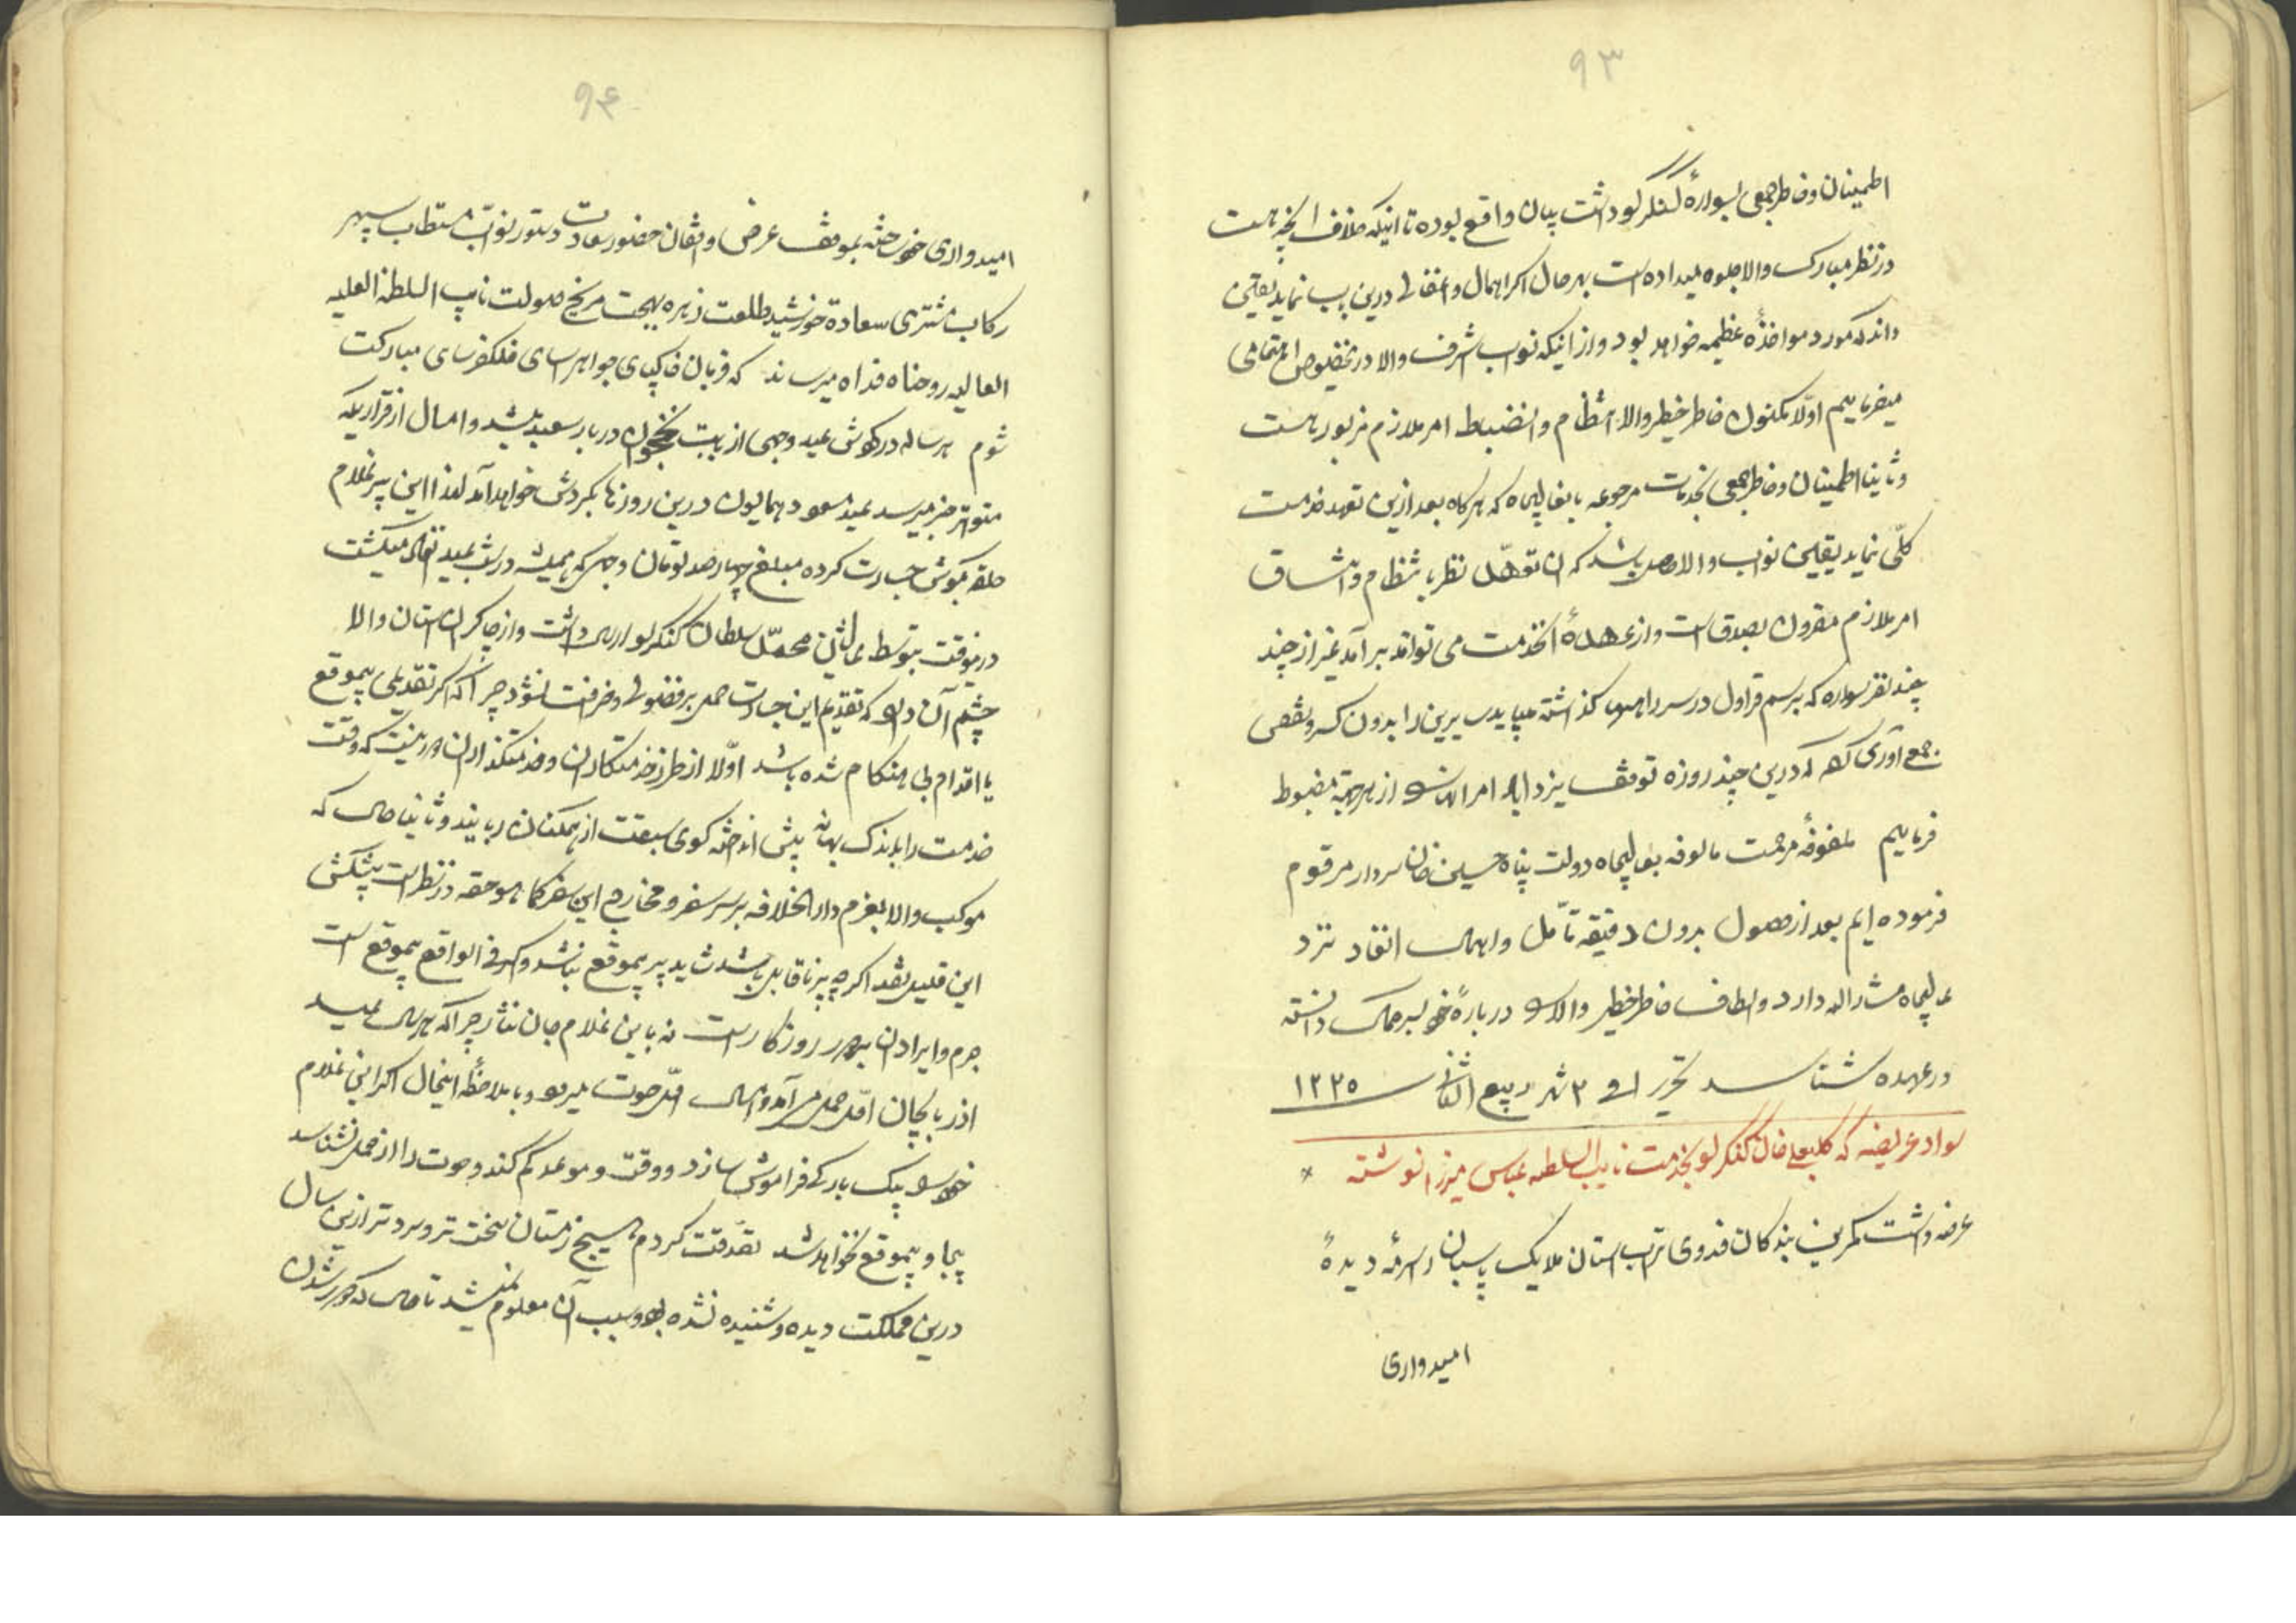 ۹۳
اطمینان و خاطر جمعی بسوارهٔ کنگرلو داشت بیان واقع بوده تا اینکه خلاف آنچه هست
در نظر مبارک والا جلوه میداده است بهر حال اگر اهمال و اغفالی درین باب نماید یقین
داند که مورد مواخذهٔ عظیمه خواهد بود و از آنیکه نواب اشرف والا در بخصوص اهتمامی
میفرماییم اوّلا مکنون خاطر خطیر والا انتظام و انضباط امر ملازم مزبور است
و ثانیا اطمینان و خاطر جمعی بخدمات مرجوعه بانعالیجاه که هرگاه بعد ازین تعهد خدمت
کلّی نماید یقین نواب والا حاصل باشد که آن تعهّد نظر بانتظام و اتساق
امر ملازم مقرون بصدق است و از عهدهٔ انخدمت می تواند برآمد غیر از چند
چند نفر سواره که برسم قراول در سر راهها گذاشته میباید سایرین را بدون کسر و نقصی
جمع آوری کرده که درین چند روزه توقف یزدآباد امر آنها را از هر جهته مضبوط
فرماییم ملفوفهٔ مرحمت مالوفه بعالیجاه دولت پناه حسین خان سردار مرقوم
فرموده ایم بعد از حصول بدون دقیقه تأمل و اهمال انفاد نزد
عالیجاه مشار الیه دارد و الطاف خاطر خطیر والا را دربارهٔ خود بسر حد کمال دانسته
در عهده شناسد تحریر فی ۳ شهر ربیع الثانی سنه ۱۲۲۵
سواد عریضه که کلبعلی خان کنگرلو بخدمت نایب السلطنه عباس میرزا نوشته
عرضه داشت کمترین بندگان فدوی تراب استان ملایک پاسبان را سرمهٔ دیدهٔ
امیدواری
۹۴
امیدواری خود ساخته بموقف عرض واقفان حضور سعادت دستور نواب مستطاب سپهر
رکاب مشتری سعادة خورشید طلعت زهره بهجت مریخ صولت نایب السلطنه العلیه
العالیه روحناه فداه میرساند که قربان خاکپای جواهر اسای فلکفرسای مبارکت
شوم هر ساله در کوش عید وجهی از بابت نخجوان در بار سعید میشد و امسال از قراریکه
متواتر خبر میرسد عید مسعود همایون درین روزها بگردش خواهد آمد لهذا این پیر غلام
حلقه بگوش جسارت کرده مبلغ چهارصد تومان وجهی که همیشه در شب عید تقدیم میگشت
درینوقت بتوسط عالیشان محمّد سلطان کنگرلو ارسال داشت و از چاکران استان والا
چشم آن دارد که تقدیم این جسارت حمل بر فضولی و خرافت نشود چرا که اگر تقدیمی بیموقع
یا اقدام بی هنگام شده باشد اوّلا از طرز خدمتکاران و خدمتگذاران دور نیست که وقت
خدمت را باندک بهانه پیش انداخته گوی سبقت از همگنان ربایند و ثانیا حال که
موکب والا بعزم دارالخلافه بر سر سفر و مخارج این سفر کما هو حقه در نظر است پیشکش
این قلیل نقد اگر چه پر ناقابل باشد شاید پر بیموقع نباشد و اگر فی الواقع بیموقع است
جرم و ایراد آن بر روزگار است نه باین غلام جان نثار چرا که هر سال عید
اذربایجان اوّل حمل می آمد و امسال اوّل حوت میرود و بملاحظهٔ اینحال اگر این غلام
خود را بیک بارگی فراموش سازد و وقت و موعد گم کند و حوت را از حمل نشناسد
بیجا و بیموقع نخواهد شد تصدقت گردم هیچ زمستان سخت تر و سرد تر ازین سال
درین مملکت دیده و شنیده نشده بود و سبب آن معلوم نمیشد تا حال که دور شدن